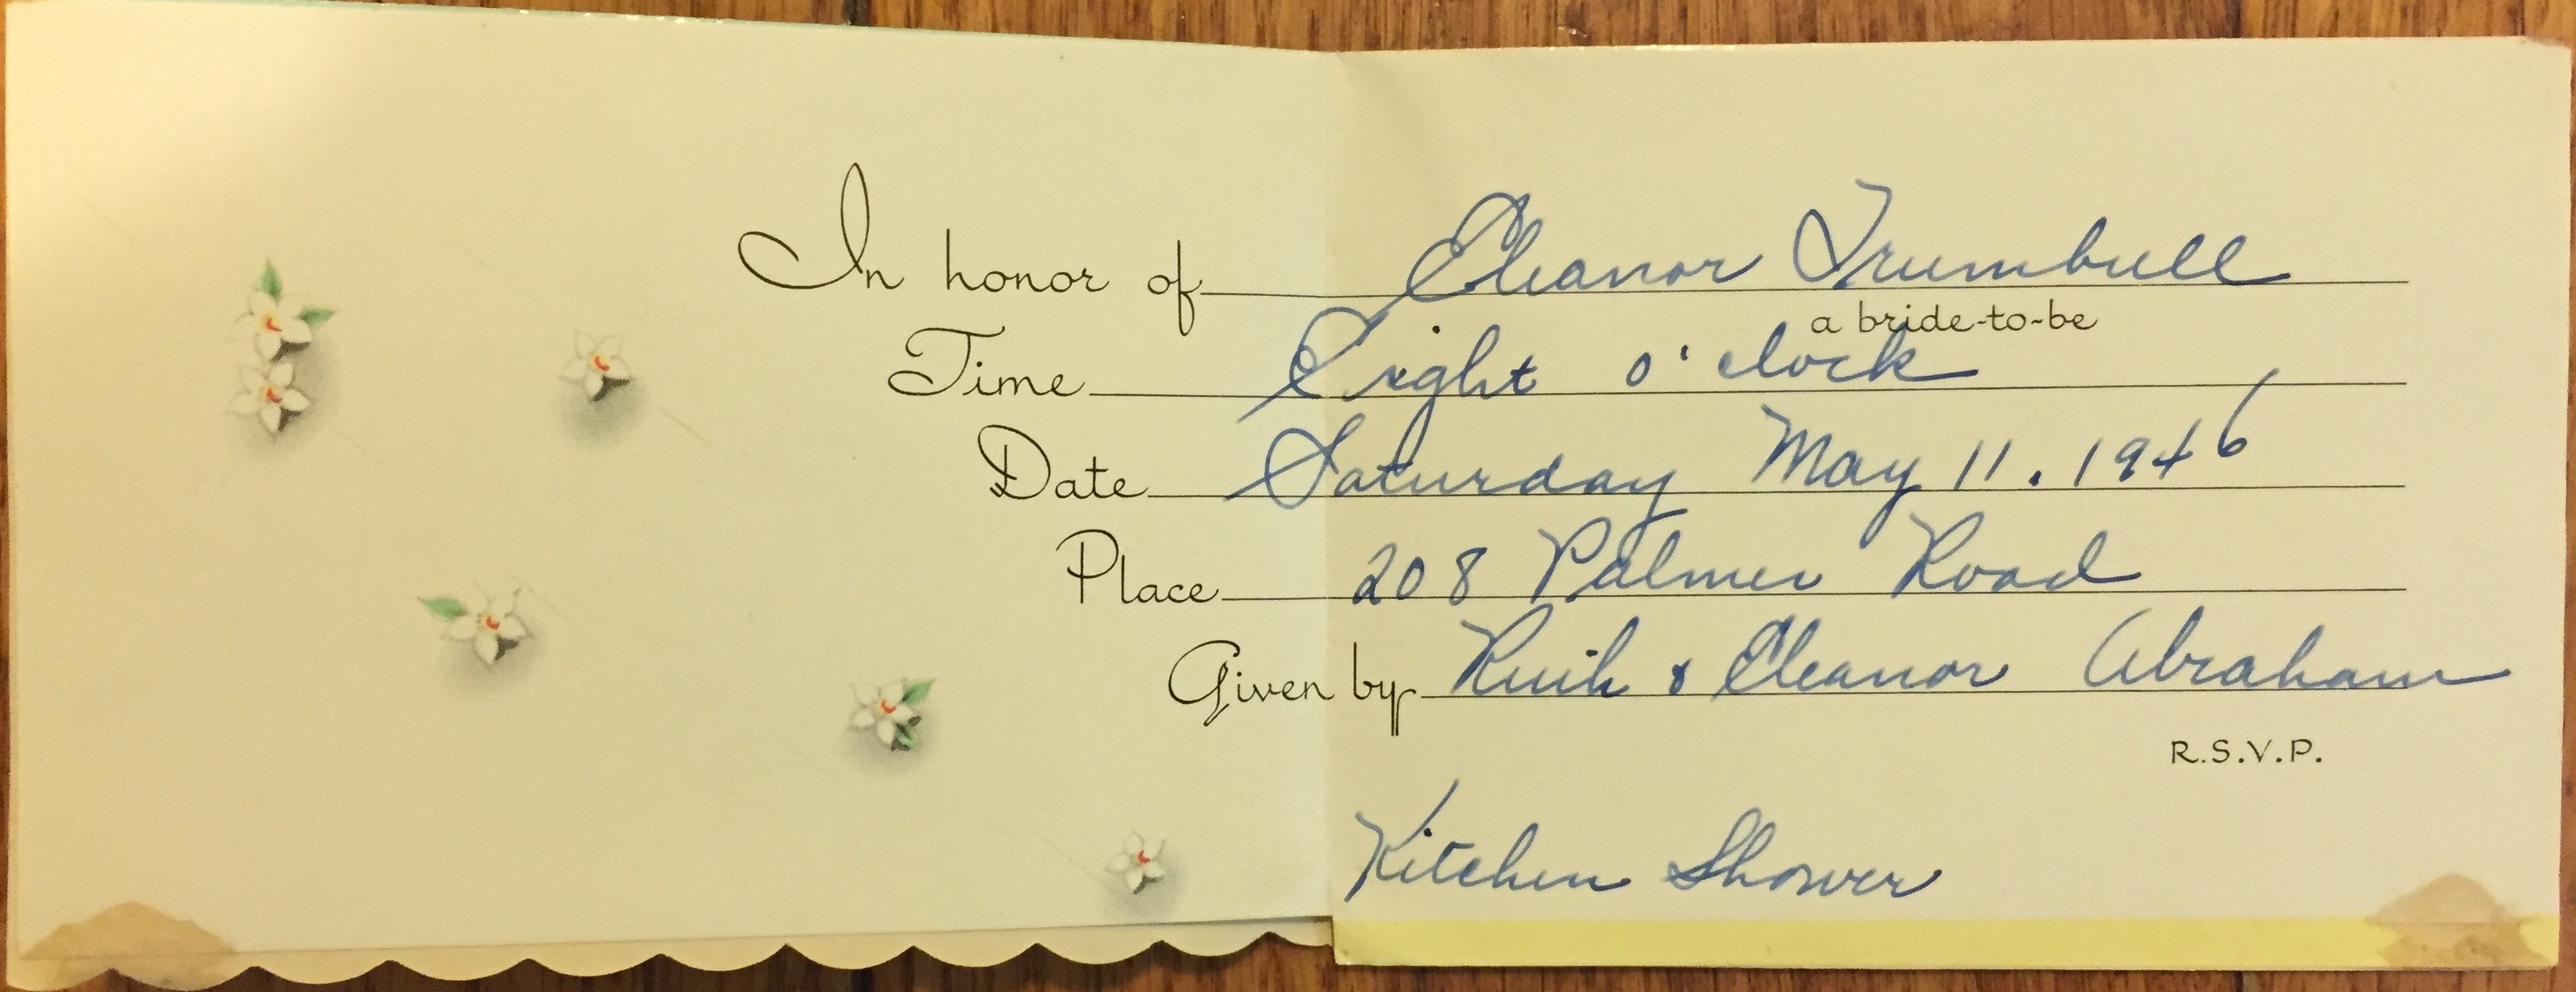 In honor of Eleanor Trumbull
a bride-to-be
Time Eight o'clock
Date Saturday May 11. 1946
Place 208 Palmer Road
Given by Ruth & Eleanor Abraham
R.S.V.P.
Kitchen Shower